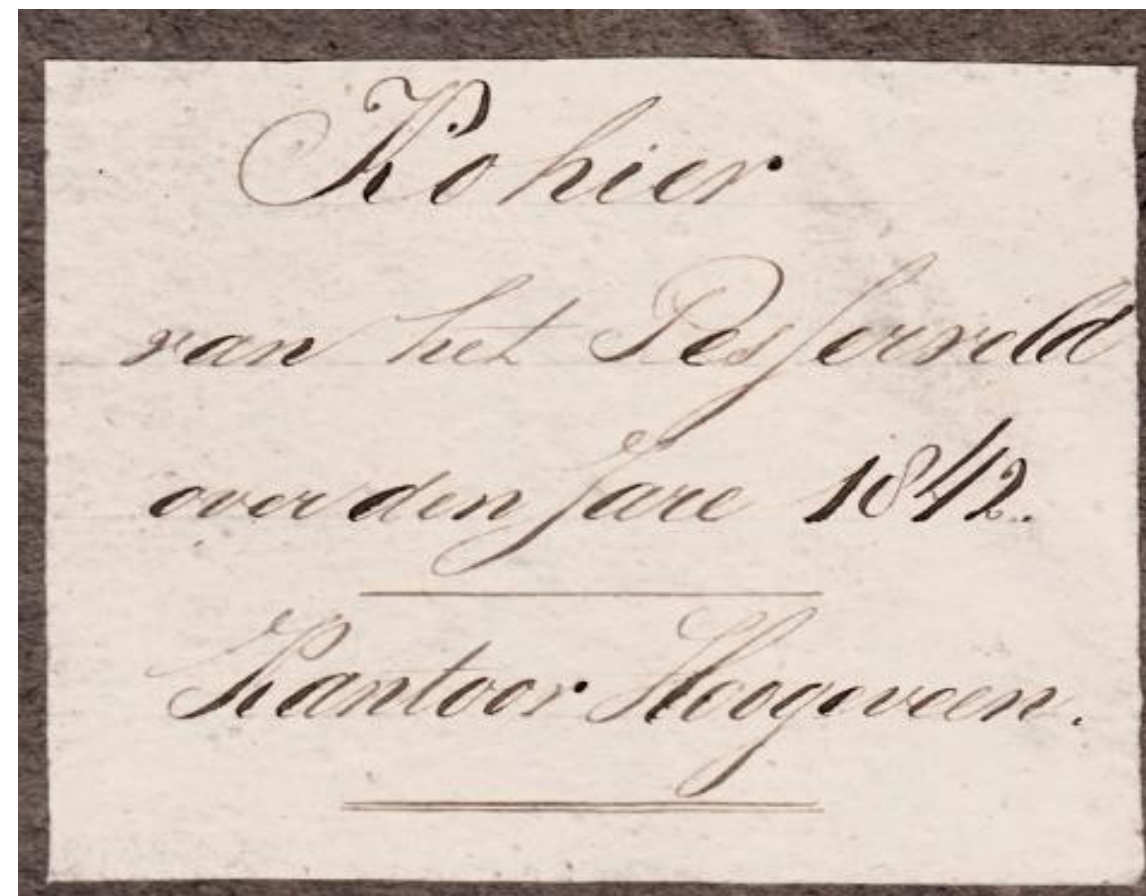 Kohier
van het Pesserveld
over den Jare 1842.
Kantoor Hoogeveen.